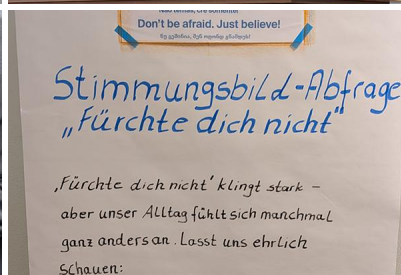 Don't be afraid. Just believe!
ნუ გეშინია, შენ ოღონდ გწამდეს!
Stimmungsbild-Abfrage
„Fürchte dich nicht"
‚Fürchte dich nicht' klingt stark –
aber unser Alltag fühlt sich manchmal
ganz anders an. Lasst uns ehrlich
schauen: